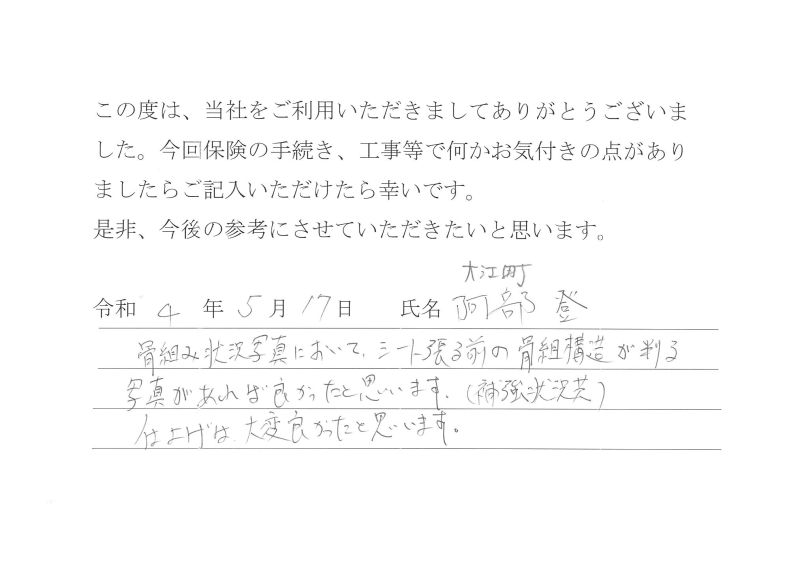 この度は、当社をご利用いただきましてありがとうございま
した。今回保険の手続き、工事等で何かお気付きの点があり
ましたらご記入いただけたら幸いです。
是非、今後の参考にさせていただきたいと思います。
大江町
令和 4 年 5 月 17 日 氏名 阿部 登
骨組み状況写真において、シート張る前の骨組構造が判る
写真があれば良かったと思います。(補強状況共)
仕上げは、大変良かったと思います。